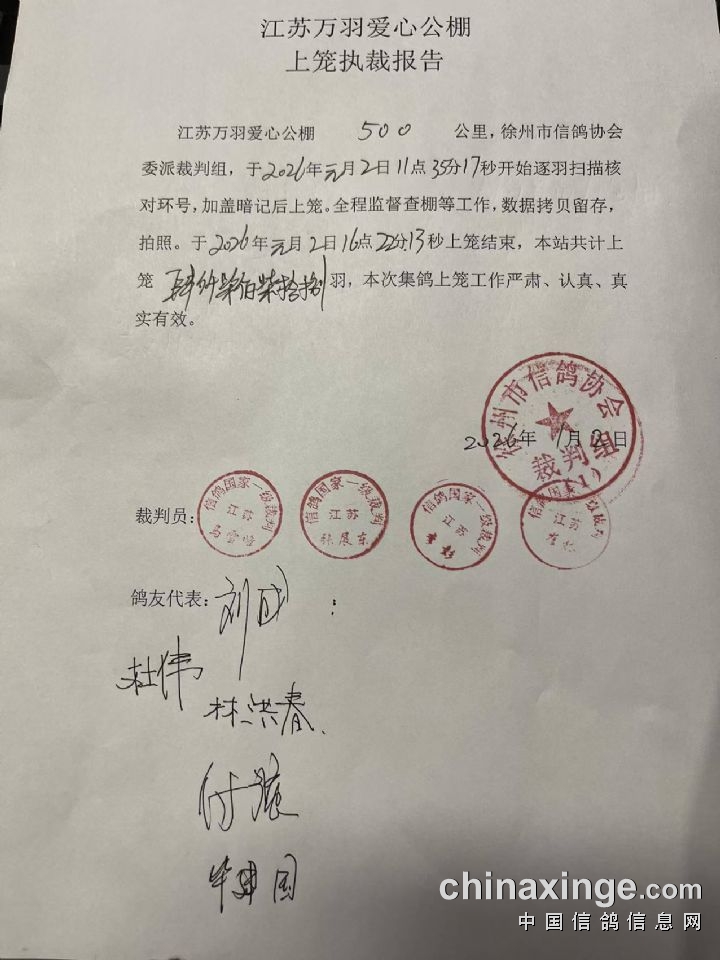 江苏万羽爱心公棚
上笼执裁报告
江苏万羽爱心公棚 500 公里，徐州市信鸽协会
委派裁判组，于2026年元月2日11点35分17秒开始逐羽扫描核
对环号，加盖暗记后上笼。全程监督查棚等工作，数据拷贝留存，
拍照。于2026年元月2日16点22分13秒上笼结束，本站共计上
笼 肆仟柒佰柒拾捌羽，本次集鸽上笼工作严肃、认真、真
实有效。
徐州市信鸽协会
裁判
(1)
2026年1月2日
裁判员：
信鸽国家一级裁判
江苏
信鸽国家一级裁判
江苏
张展东
信鸽国家一级裁判
江苏
江苏
鸽友代表：刘
杜伟
林洪春
付
国
chinaxinge.com
中国信鸽信息网